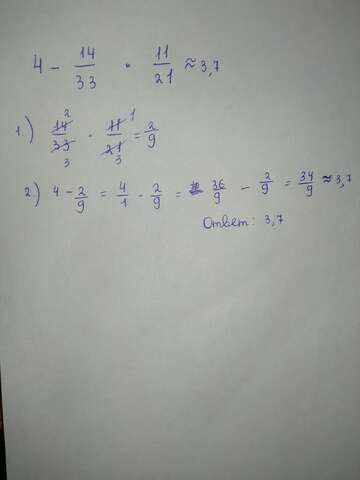 4 - 14/33 · 11/21 ≈ 3,7
1) 14/33 · 11/21 = 2/9
2) 4 - 2/9 = 4/1 - 2/9 = 36/9 - 2/9 = 34/9 ≈ 3,7
Ответ: 3,7